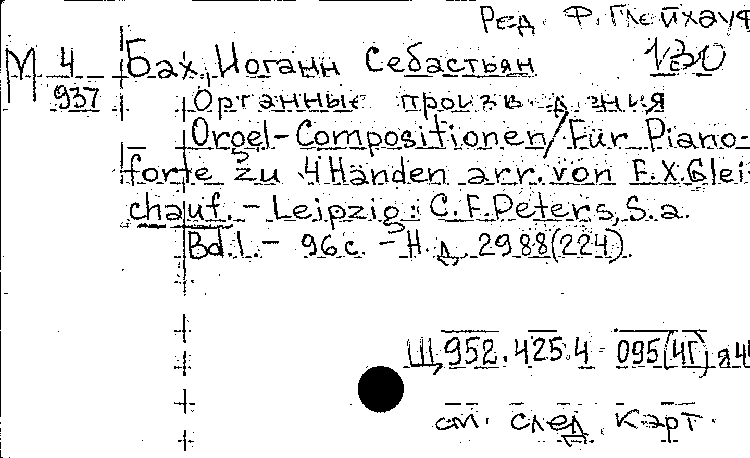 Ред. Ф. Глейхауф
М 4 Бах, Иоганн Себастьян 1330
937 Органные произведения
Orgel-Compositionen/Für Piano-
forte zu 4 Händen arr. von F.X.Glei-
chauf. - Leipzig: C.F.Peters, S.a.
Bd.1. - 96 с. - Н.д. 2988(224).
Щ952.425.4-095(4Г)я4
см. след. карт.